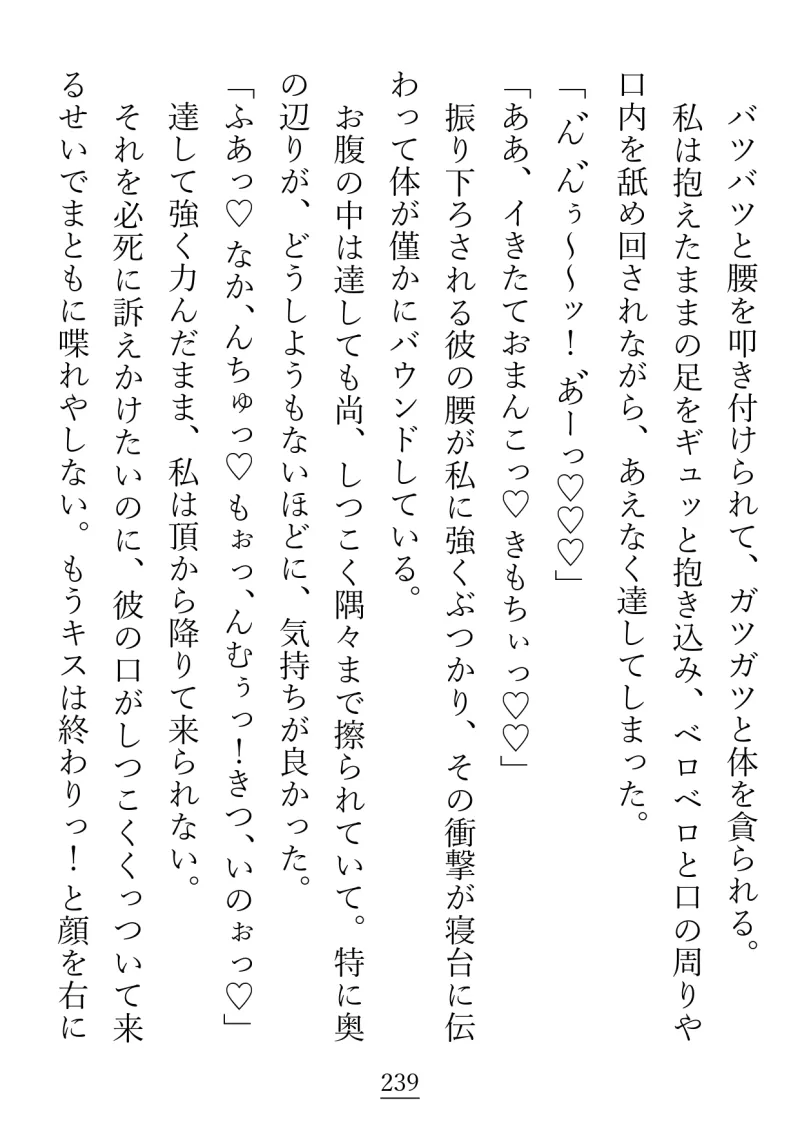 バツバツと腰を叩き付けられて、ガツガツと体を貪られる。
私は抱えたままの足をギュッと抱き込み、ベロベロと口の周りや
口内を舐め回されながら、あえなく達してしまった。
「ん゛ん゛ぅ～～ッ！あ゛ーっ♡♡♡」
「ああ、イきたておまんこっ♡きもちぃっ♡♡」
振り下ろされる彼の腰が私に強くぶつかり、その衝撃が寝台に伝
わって体が僅かにバウンドしている。
お腹の中は達しても尚、しつこく隅々まで擦られていて。特に奥
の辺りが、どうしようもないほどに、気持ちが良かった。
「ふあっ♡なか、んちゅっ♡もぉっ、んむぅっ！きつ、いのぉっ♡」
達して強く力んだまま、私は頂から降りて来られない。
それを必死に訴えかけたいのに、彼の口がしつこくくっついて来
るせいでまともに喋れやしない。もうキスは終わりっ！と顔を右に
239